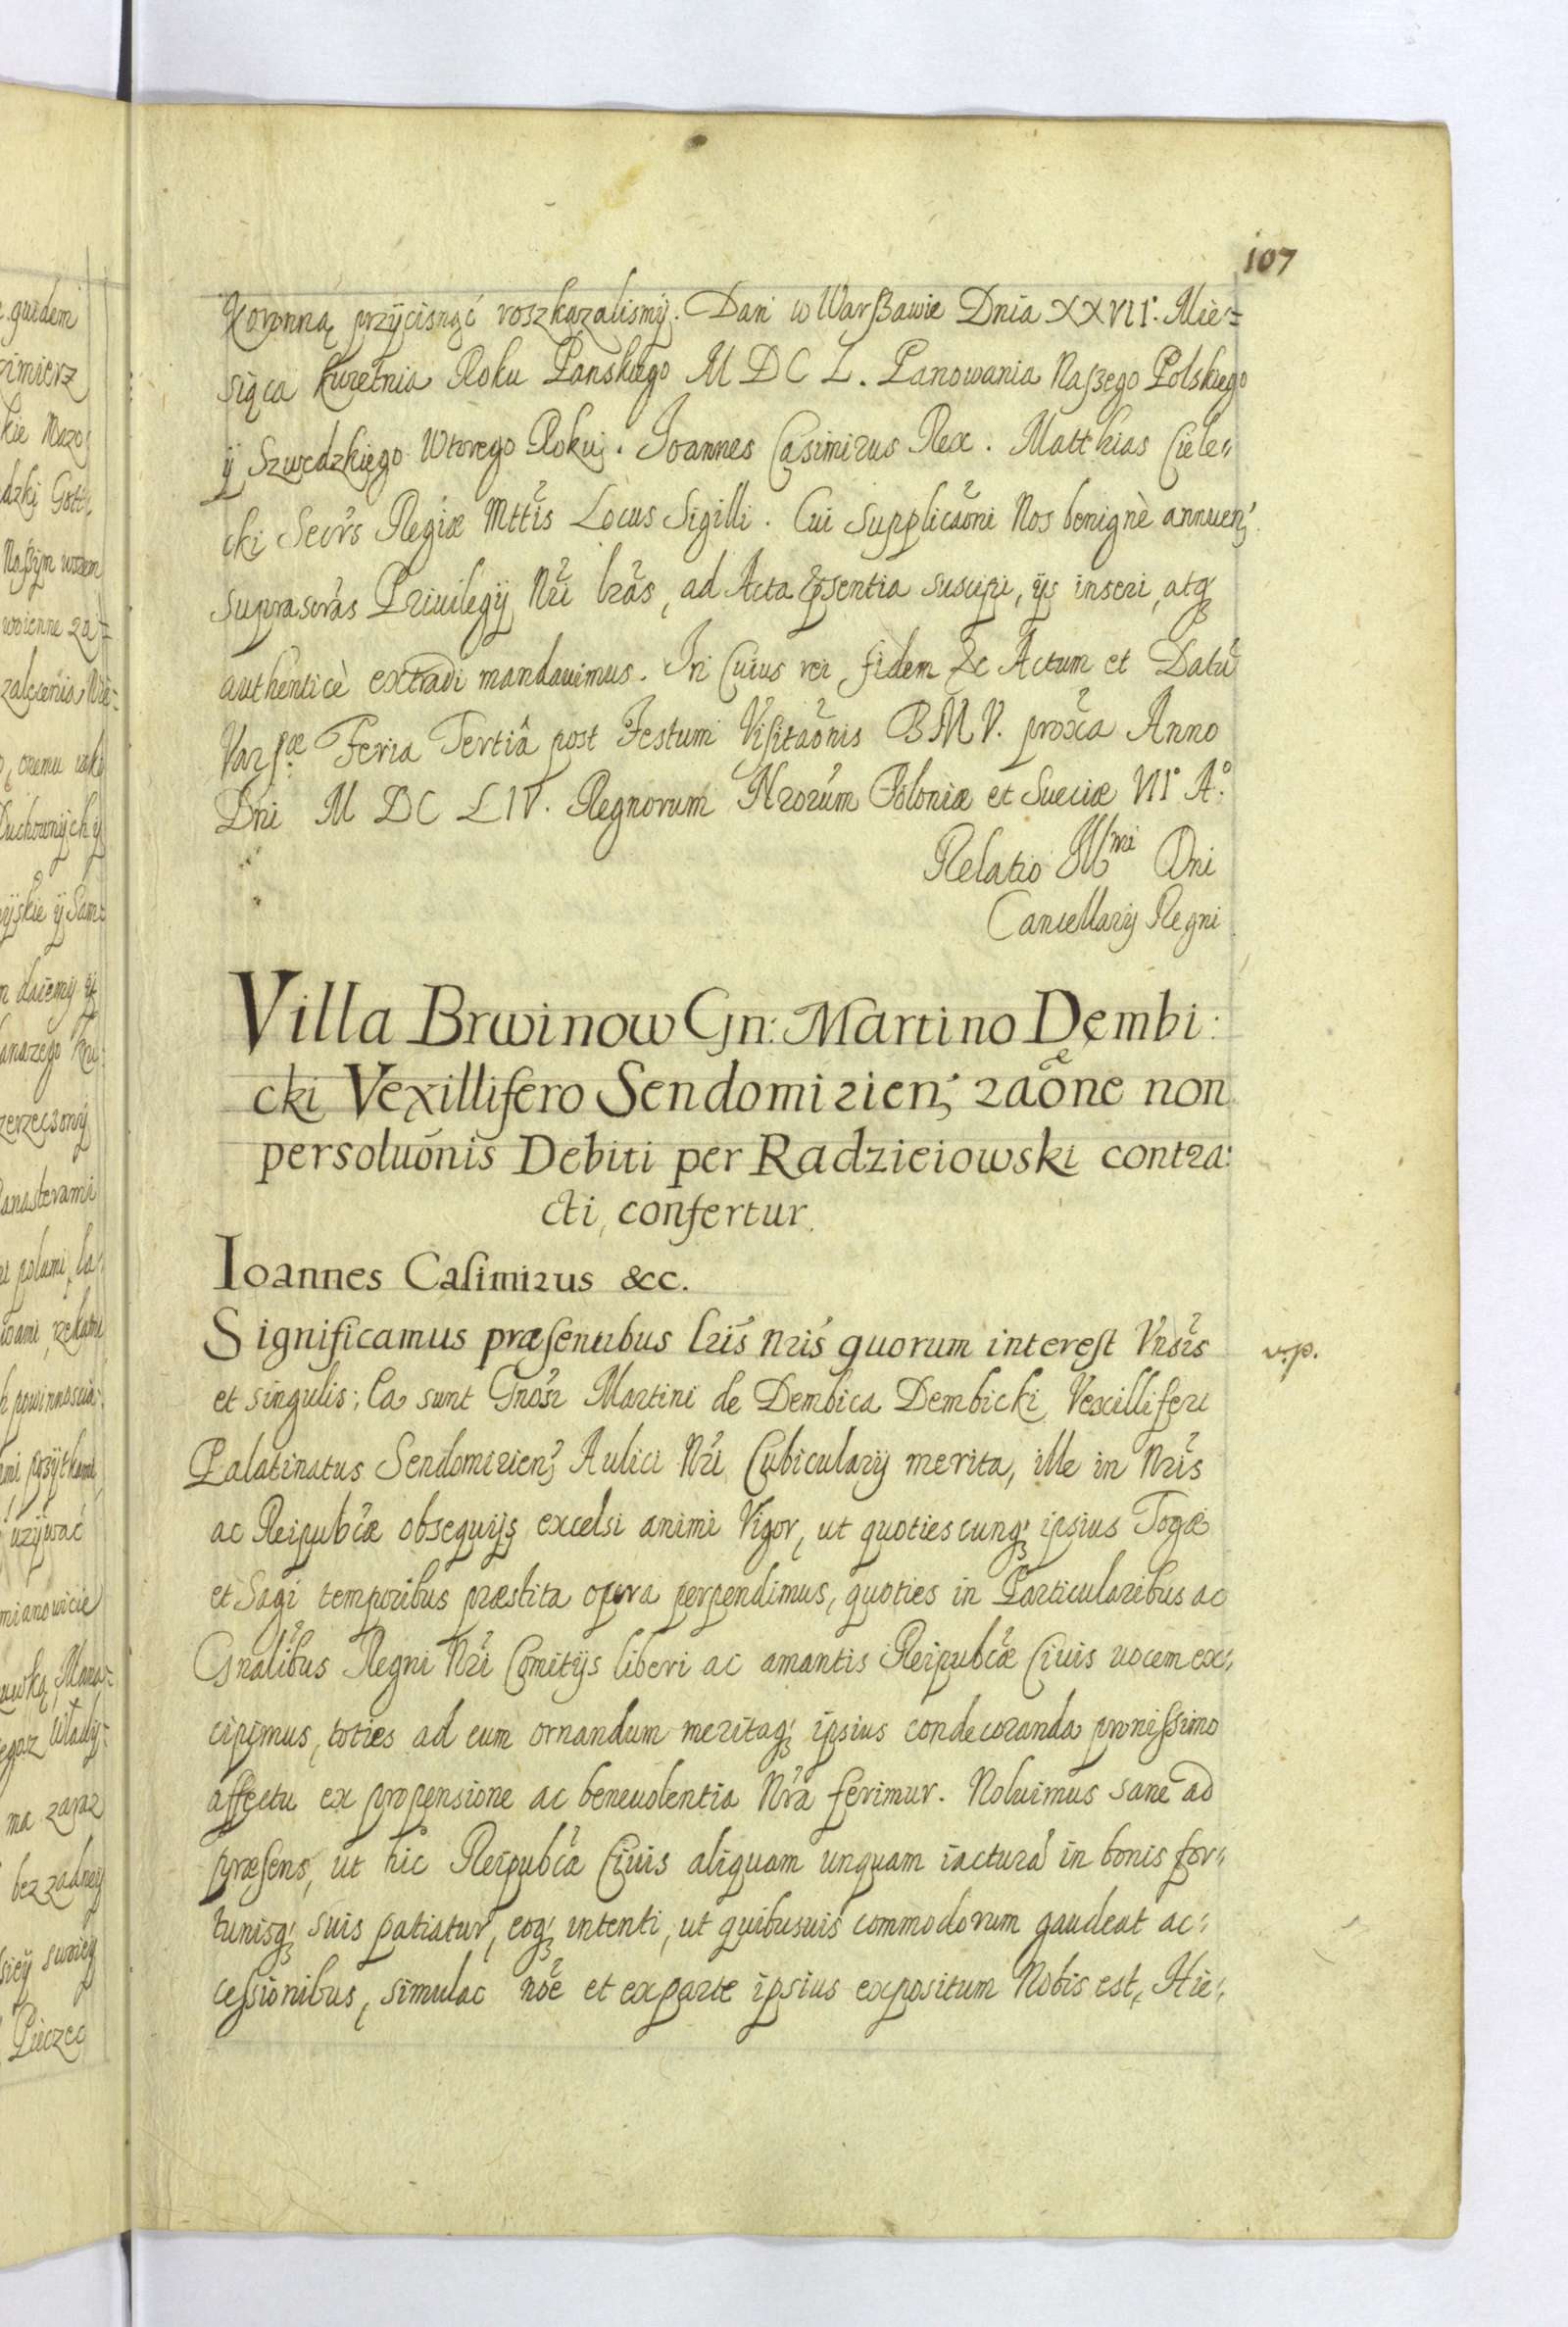 107
Koronną przÿcisnąć roszkazalismÿ. Dan w Warßawie Dnia XXVII. Mie=
siąca kwietnia Roku Panskiego M DC L. Panowania Naszego Polskiego
ÿ Szwedzkiego Wtorego Roku. Joannes Casimirus Rex. Matthias Ciele-
cki Secrs Regiæ Mttis Locus Sigilli. Cui Supplicaõni Nos benignè annuen;
suprascras Priuilegÿ Nri lras, ad Acta pñsentia suscipi, ÿs inseri, atq;
authenticè extradi mandauimus. In Cuius rei fidem &c Actum et Datũ
Vars:æ Feria Tertiâ post Festum Visitaõnis BMV. proxa Anno
Dni M DC LIV. Regnorum Nrorum Poloniæ et Sueciæ VII° A°.
Relatio Illmi Dni
Cancellarÿ Regni
Villa Brwinow Gn: Martino Dembi:
cki Vexillifero Sendomirien; raõne non
persoluõnis Debiti per Radzieiowski contra:
cti, confertur.
Ioannes Casimirus &cc.
Significamus præsentibus lris nris quorum interest Vnsis
et singulis; Ea sunt Gnosi Martini de Dembica Dembicki Vexilliferi
Palatinatus Sendomirien; Aulici Nri Cubicularÿ merita, ille in Nris
ac Reipubcæ obsequÿs excelsi animi Vigor, ut quotiescunq; ipsius Togæ
et Sagi temporibus præstita opera perpendimus, quoties in Particularibus ac
Gnalibus Regni Nri Comitÿs liberi ac amantis Reipubcæ Ciuis uocem ex-
cipimus, toties ad eum ornandum meritaq; ipsius condecoranda pronissimo
affectu ex propensione ac beneuolentia Nra ferimur. Noluimus sane ad
præsens, ut hic Reipubcæ Ciuis aliquam unquam iacturã in bonis for-
tunisq; suis patiatur, eoq; intenti, ut quibusuis commodorum gaudeat ac-
cessionibus, simulac nõe et ex parte ipsius expositum Nobis est, Hie-
v.p.